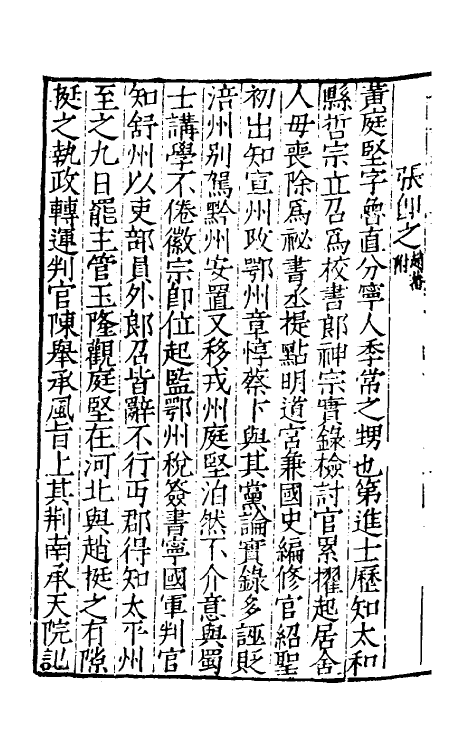 張即之
附
黃庭堅字魯直分寧人李常之甥也第進士歷知太和
縣哲宗立召爲校書郎神宗實錄檢討官累擢起居舍
人毋喪除爲祕書丞提點明道宮兼國史編修官紹聖
初出知宣州改鄂州章惇蔡卞與其黨論實錄多誣貶
涪州別駕黔州安置又移戎州庭堅泊然不介意與蜀
士講學不倦徽宗卽位起監鄂州稅簽書寧國軍判官
知舒州以吏部員外郎召皆辭不行丐郡得知太平州
至之九日罷主管玉隆觀庭堅在河北與趙挺之有隙
挺之執政轉運判官陳舉承風旨上其荆南承天院記